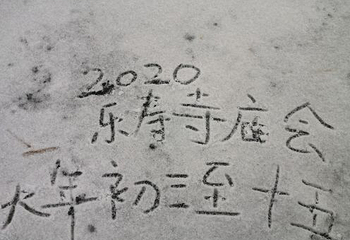 2020
乐寿寺庙会
大年初三至十五